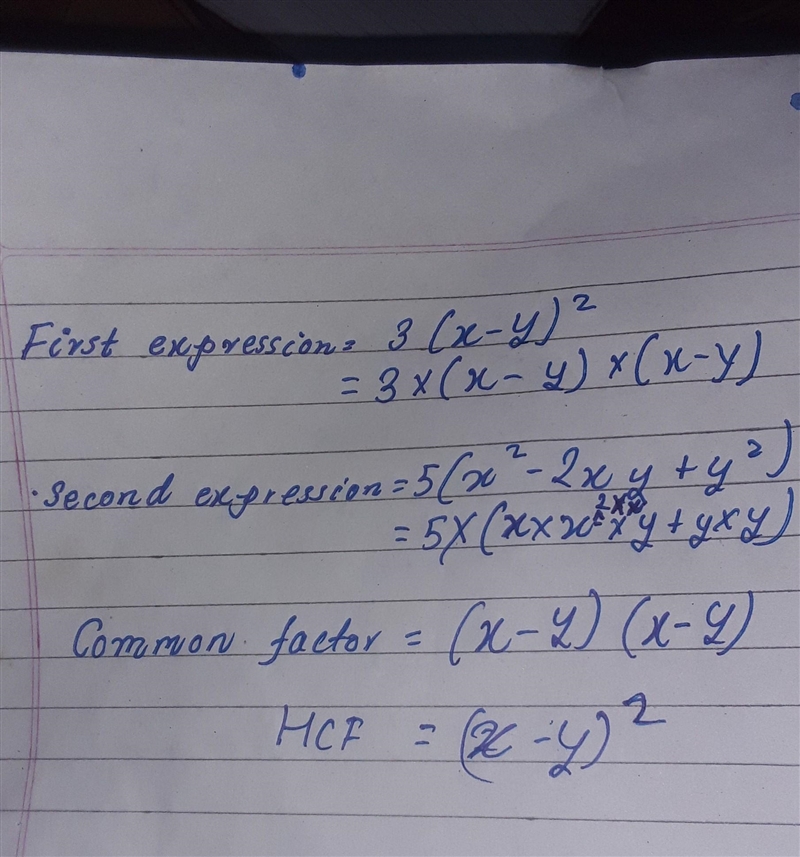 First expression = 3 (x-y)²
= 3×(x-y)×(x-y)
Second expression = 5(x²-2xy+y²)
= 5×(x×x-2×x×y+y×y)
Common factor = (x-y)(x-y)
HCF = (x-y)²